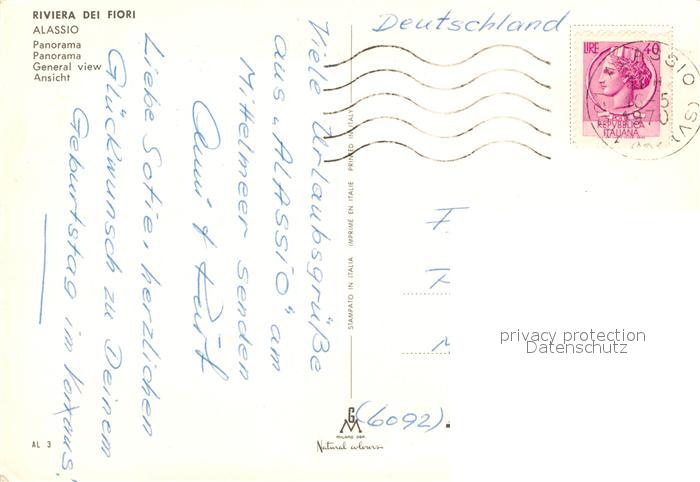 RIVIERA DEI FIORI
ALASSIO
Panorama
Panorama
General view
Ansicht
Viele Urlaubsgrüße
aus „ALASSIO" am
Mittelmeer senden
Liebe Sofie, herzlichen
Glückwunsch zu Deinem
Geburtstag im voraus!
AL 3
STAMPATO IN ITALIA IMPRIMÉ EN ITALIE PRINTED IN ITALY
GM
MILANO DEP.
Natural colours
Deutschland
LIRE 40
REPVBBLICA
ITALIANA
ALASSIO (SV)
-5
1970
F
F
(6092)
privacy protection
Datenschutz